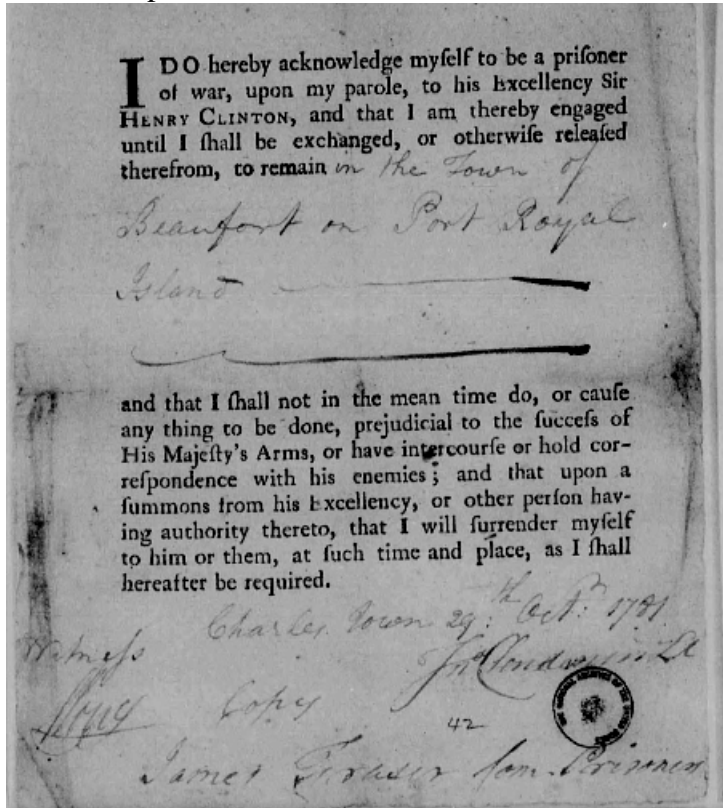 I DO hereby acknowledge myſelf to be a priſoner
of war, upon my parole, to his Excellency Sir
HENRY CLINTON, and that I am thereby engaged
until I ſhall be exchanged, or otherwiſe releaſed
therefrom, to remain in the Town of
Beaufort on Port Royal
Island
and that I ſhall not in the mean time do, or cauſe
any thing to be done, prejudicial to the ſucceſs of
His Majeſty's Arms, or have intercourſe or hold cor-
reſpondence with his enemies; and that upon a
ſummons from his Excellency, or other perſon hav-
ing authority thereto, that I will ſurrender myſelf
to him or them, at ſuch time and place, as I ſhall
hereafter be required.
Charles Town 29:th Octr: 1781
Witneſs
Jno
Copy
42
James Fraser Com. Prisoners